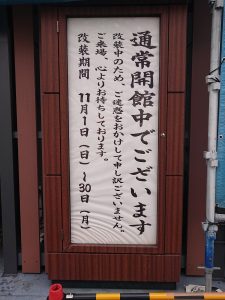 通常開館中でございます
改装中のため、ご迷惑をおかけして申し訳ございません。
ご来場、心よりお待ちしております。
改装期間 11月1日(日)~30日(月)